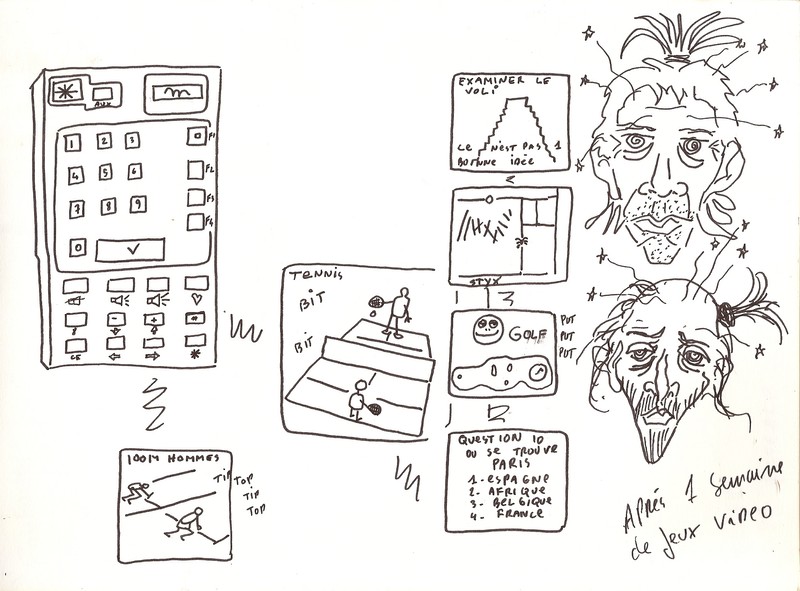 AUX
1 2 3
F1
4 5 6
F2
7 8 9
F3
F4
0
TENNIS
BIT
BIT
100M HOMMES
TIP TOP
TIP
TOP
EXAMINER LE
VOLI
CE N'EST PAS 1
BONNE IDÉE
STYX
GOLF
PUT
PUT
PUT
QUESTION 10
OU SE TROUVE
PARIS
1-ESPAGNE
2- AFRIQUE
3- BELGIQUE
4- FRANCE
APRÉS 1 SEMAiNE
de Jeux ViDEO